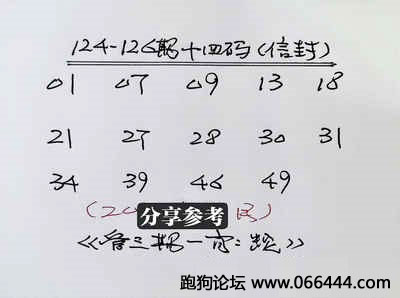 124-126期十四码(信封)
01 07 09 13 18
21 27 28 30 31
34 39 46 49
(20
分享参考
《管三期一百:赔》
跑狗论坛 www.066444.com